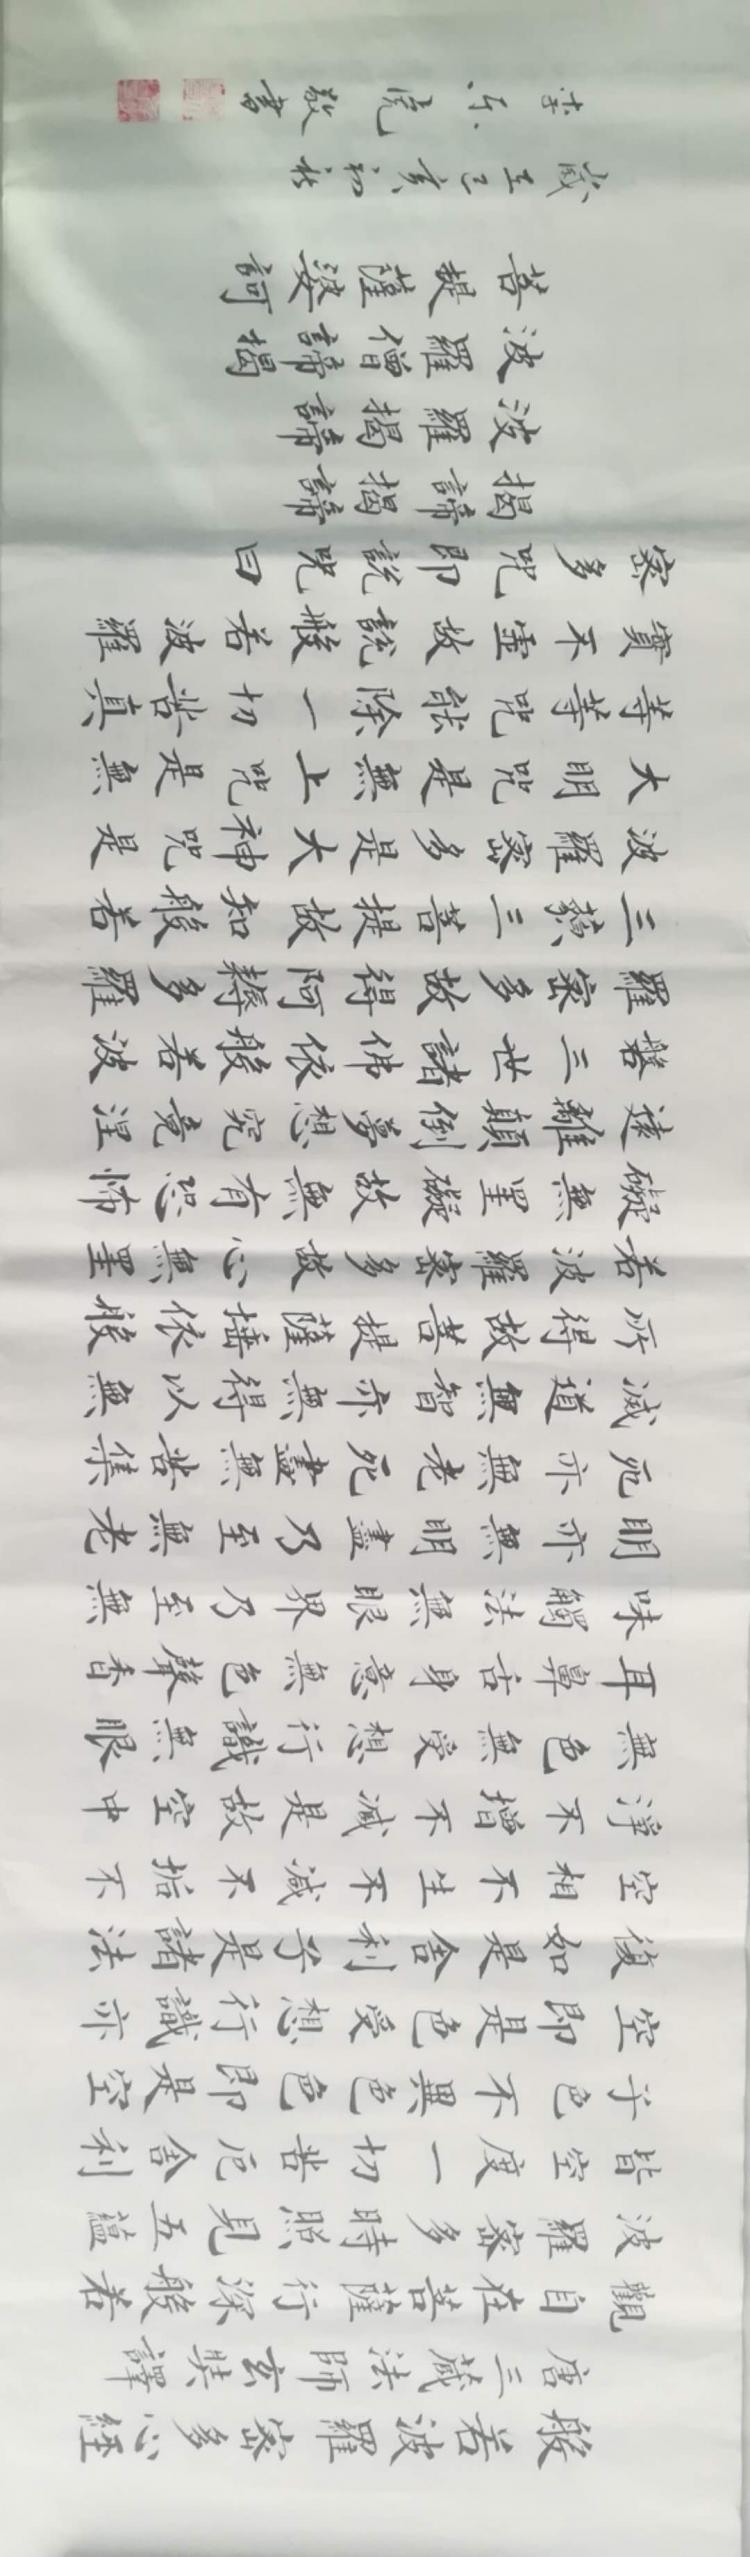 般若波羅密多心經
唐三藏法師玄奘譯
觀自在菩薩行深般若
波羅密多時照見五蘊
皆空度一切苦厄舍利
子色不異色色即是空
空即是色受想行識亦
復如是舍利子是諸法
空相不生不滅不垢不
淨不增不減是故空中
無色無受想行識無眼
耳鼻舌身意無色聲香
味觸法無眼界乃至無
明亦無明盡乃至無老
死亦無老死盡無苦集
滅道無智亦無得以無
所得故菩提薩埵依般
若波羅密多故心無罣
礙無罣礙故無有恐怖
遠離顛倒夢想究竟涅
槃三世諸佛依般若波
羅密多故得阿耨多羅
三藐三菩提故知般若
波羅密多是大神咒是
大明咒是無上咒是無
等等咒能除一切苦真
實不虛故說般若波羅
密多咒即說咒曰
揭諦揭諦
波羅揭諦
波羅僧諦揭
菩提薩婆訶
歲在己亥初秋
李乐敬書